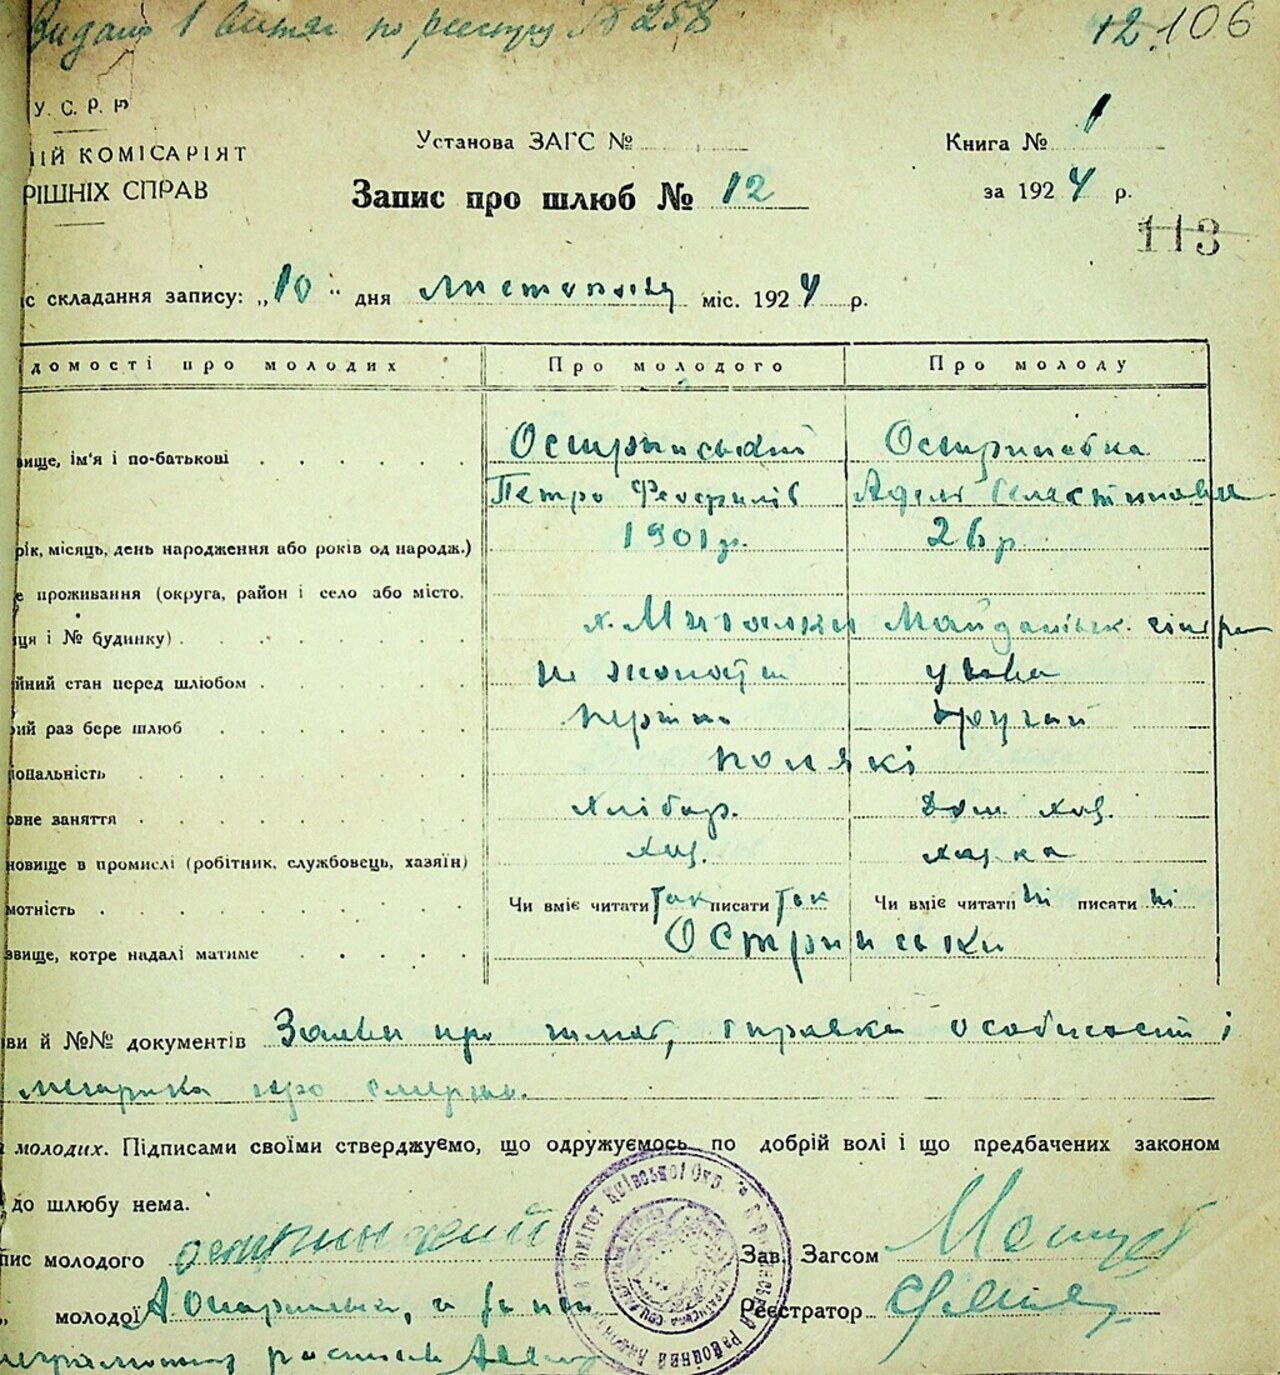 Видано 1 витяг по реєстру № 258
12. 106
У. С. Р. Р
ИЙ КОМІСАРІЯТ
РІШНІХ СПРАВ
Установа ЗАГС №
Книга № 1
Запис про шлюб № 12
за 1924 р.
113
с складання запису: „10" дня листопада міс. 1924 р.
домості про молодих
Про молодого
Про молоду
вище, ім'я і по-батькові
Остринський
Остринська
Петро
Адель
рік, місяць, день народження або років од народж.)
1901 р.
26 р
е проживання (округа, район і село або місто,
ця і № будинку)
х. Майданівськ.
йний стан перед шлюбом
не жонатий
удова
ий раз бере шлюб
перший
другий
іональність
поляки
овне заняття
хлібор.
Дом. хаз.
новище в промислі (робітник, службовець, хазяїн)
хаз.
хаз-ка
мотність
Чи вміє читати так писати так
Чи вміє читати ні писати ні
звище, котре надалі матиме
Остринськи
ви й №№ документів Заяви про шлюб, справка особистости і
про смерть.
молодих. Підписами своїми стверджуємо, що одружуємось по добрій волі і що предбачених законом
до шлюбу нема.
пис молодого Остринский
Зав. Загсом
молодої А Остринська, а за неї
Реєстратор
росписався